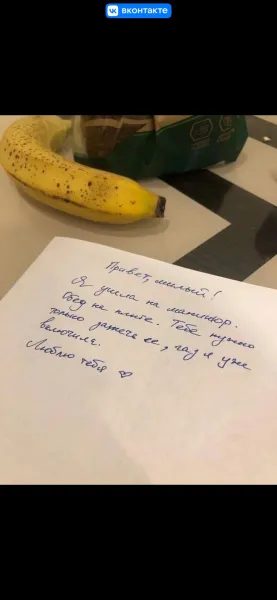 вконтакте
Привет, милый!
Я ушла на маникюр.
Обед на плите. Тебе нужно
только зажечь ее, газ я уже
включила.
Люблю тебя ♡